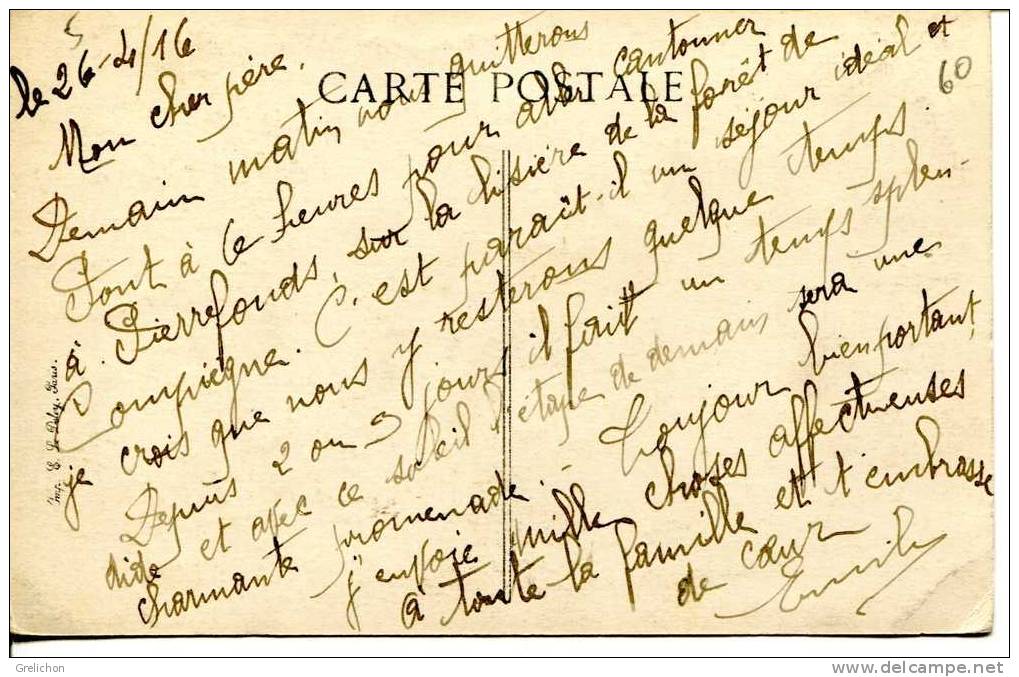 60
le 26-4/16
CARTE POSTALE
Mon cher père.
Demain matin nous quitterons
Pont à 6 heures pour aller cantonner
à Pierrefonds, sur la lisière de la forêt de
Compiègne. C'est paraît-il un séjour idéal et
je crois que nous y resterons quelque temps.
Depuis 2 ou 3 jours il fait un temps splen-
dide et avec ce soleil l'étape de demain sera une
charmante promenade. Toujours bien portant,
j'envoie mille choses affectueuses
à toute la famille et t'embrasse
de cœur
Emile
Imp. E. Le Deley, Paris.
Grelichon
www.delcampe.net